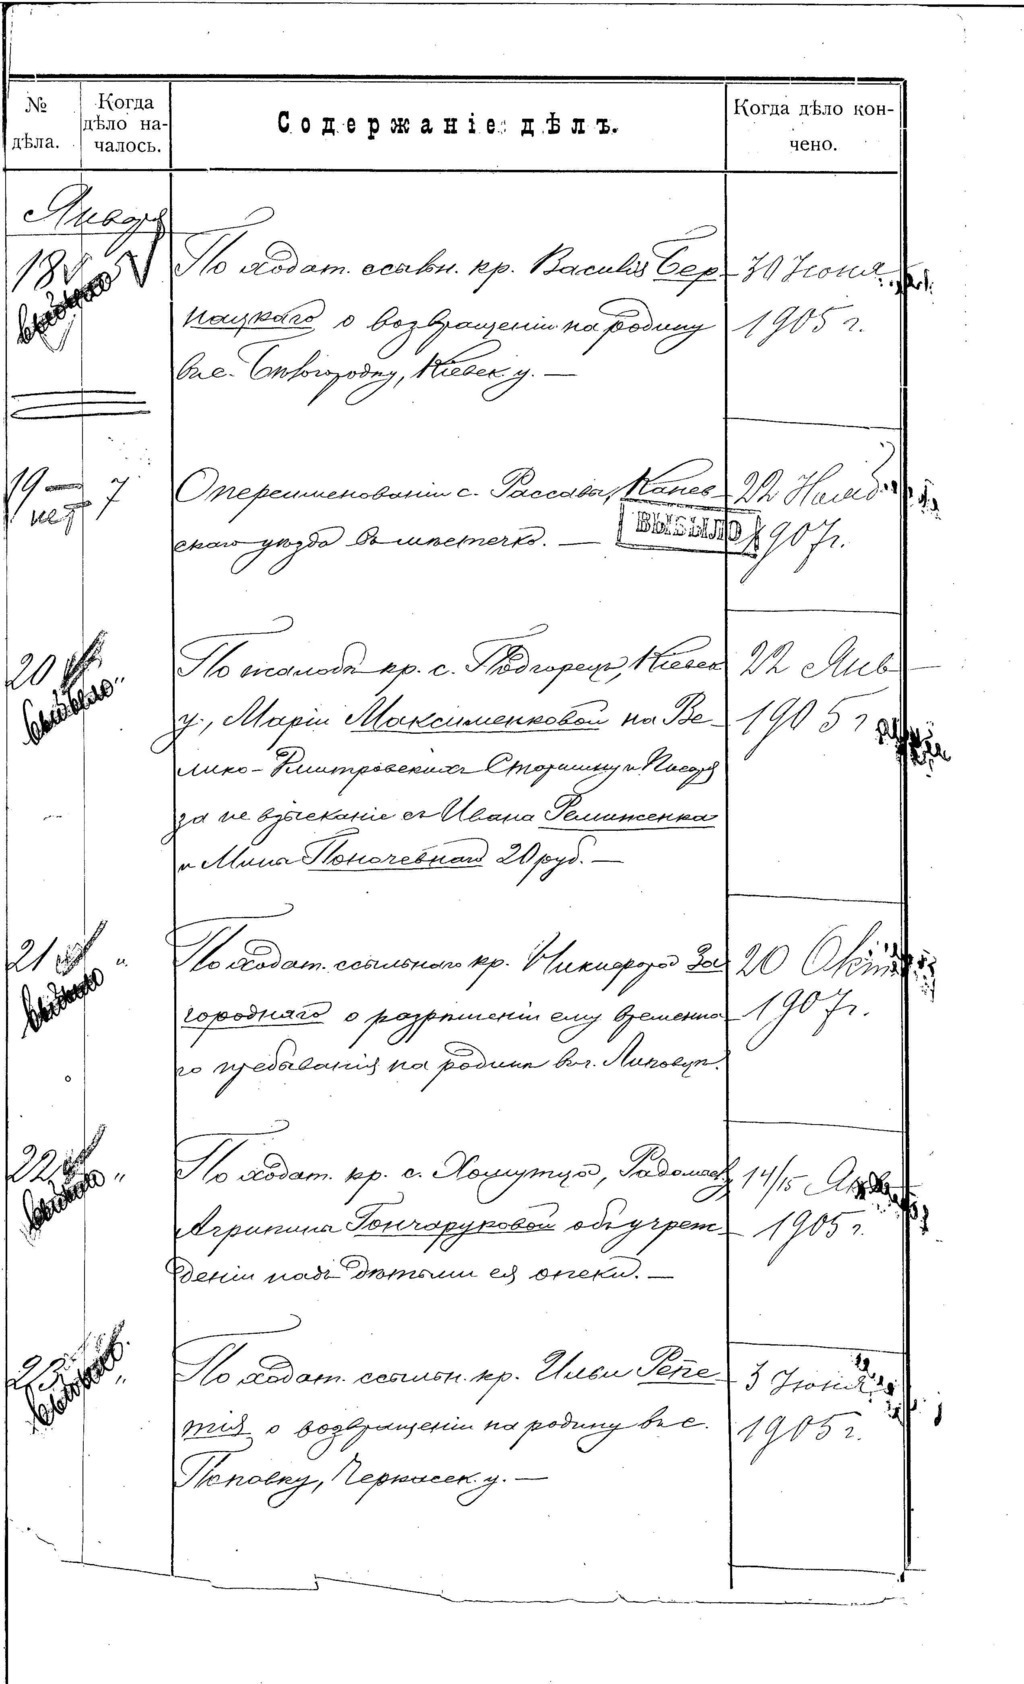 № дѣла.
Когда дѣло на-чалось.
Содержаніе дѣлъ.
Когда дѣло кон-чено.
Января
18
выбыло
По ходат. ссыльн. кр. Василія Бер-
нацкаго о возвращеніи на родину
въ с. Бѣлгородку, Кіевск. у. —
30 Іюня
1905 г.
19 — 7
нет
О переименованіи с. Россавы, Канев-
скаго уѣзда въ мѣстечко. —
ВЫБЫЛО
22 Нояб
1907 г.
20 "
выбыло
По жалобѣ кр. с. Подгорецъ, Кіевск
у., Маріи Максименковой на Ве-
лико-Дмитровскихъ Старшину и Писаря
за не взысканіе съ Ивана Ремиженка
и Мины Поночевнаго 20 руб. —
22 Янв
1905 г
21 "
выбыло
По ходат. ссыльнаго кр. Никифора За-
городняго о разрѣшеніи ему временна-
го пребыванія на родинѣ въ г. Липовцѣ.
20 Окт
1907 г.
22 "
выбыло
По ходат. кр. с. Хомутца, Радомыс. у
Агрипины Гончаруковой объ учреж-
деніи надъ дѣтьми ея опеки. —
14/15 Янв
1905 г.
23 "
выбыло
По ходат. ссыльн. кр. Ильи Репе-
тія о возвращеніи на родину въ с.
Поповку, Черкасск. у. —
3 Іюня
1905 г.